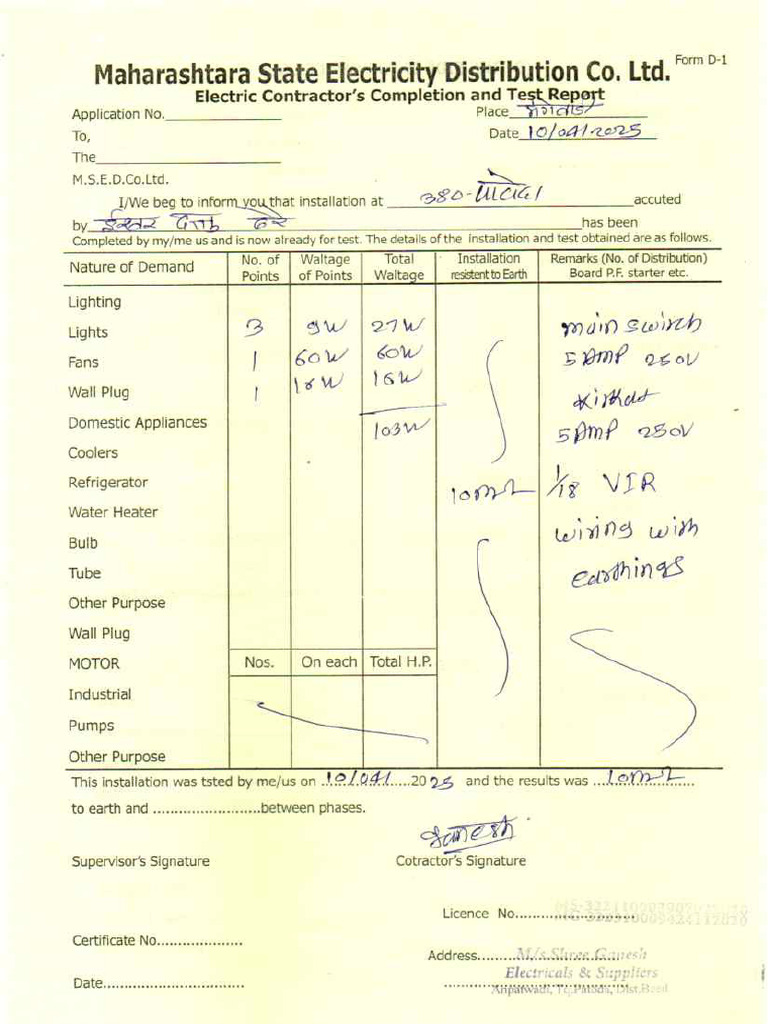 Form D-1
Maharashtara State Electricity Distribution Co. Ltd.
Electric Contractor's Completion and Test Report
Application No.
Place
To,
Date 10/04/2025
The
M.S.E.D.Co.Ltd.
I/We beg to inform you that installation at 380- accuted
by ईश्वर has been
Completed by my/me us and is now already for test. The details of the installation and test obtained are as follows.
Nature of Demand No. of Points Waltage of Points Total Waltage Installation resistent to Earth Remarks (No. of Distribution) Board P.F. starter etc.
Lighting
Lights 3 9W 27W main switch
Fans 1 60W 60W 5 AMP 250V
Wall Plug 1 16W 16W kitkat
Domestic Appliances 103W 5 AMP 250V
Coolers
Refrigerator 10mΩ 1/18 VIR
Water Heater
wiring with
Bulb
Tube earthings
Other Purpose
Wall Plug
MOTOR Nos. On each Total H.P.
Industrial
Pumps
Other Purpose
This installation was tsted by me/us on 10/04/ 2025 and the results was 10mΩ
to earth and ........................between phases.
Ganesh
Supervisor's Signature Cotractor's Signature
Licence No.
Certificate No.
Address M/s Shree Ganesh
Electricals & Suppliers
Date